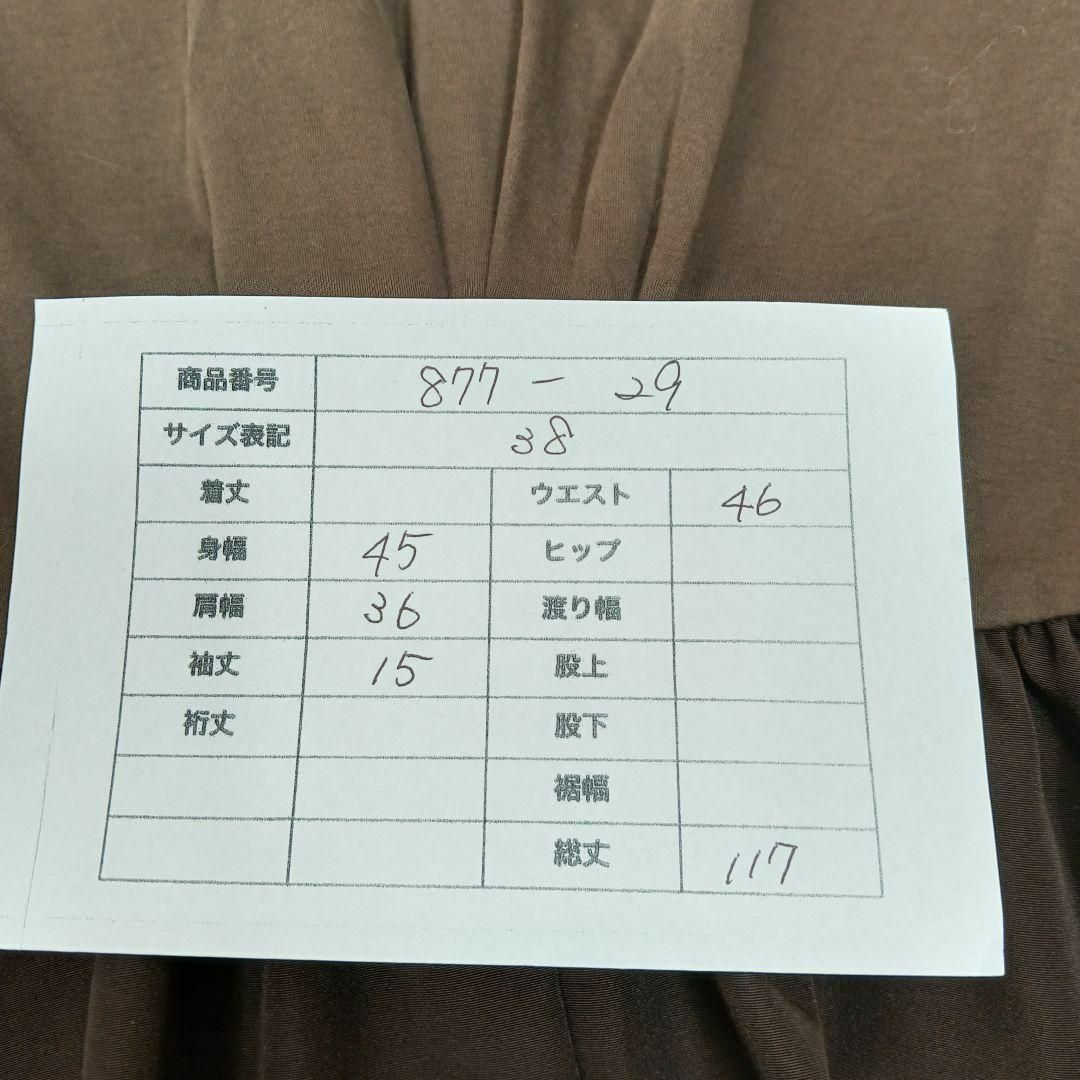 商品番号 877 - 29
サイズ表記 38
着丈 ウエスト 46
身幅 45 ヒップ
肩幅 36 渡り幅
袖丈 15 股上
裄丈 股下
裾幅
総丈 117